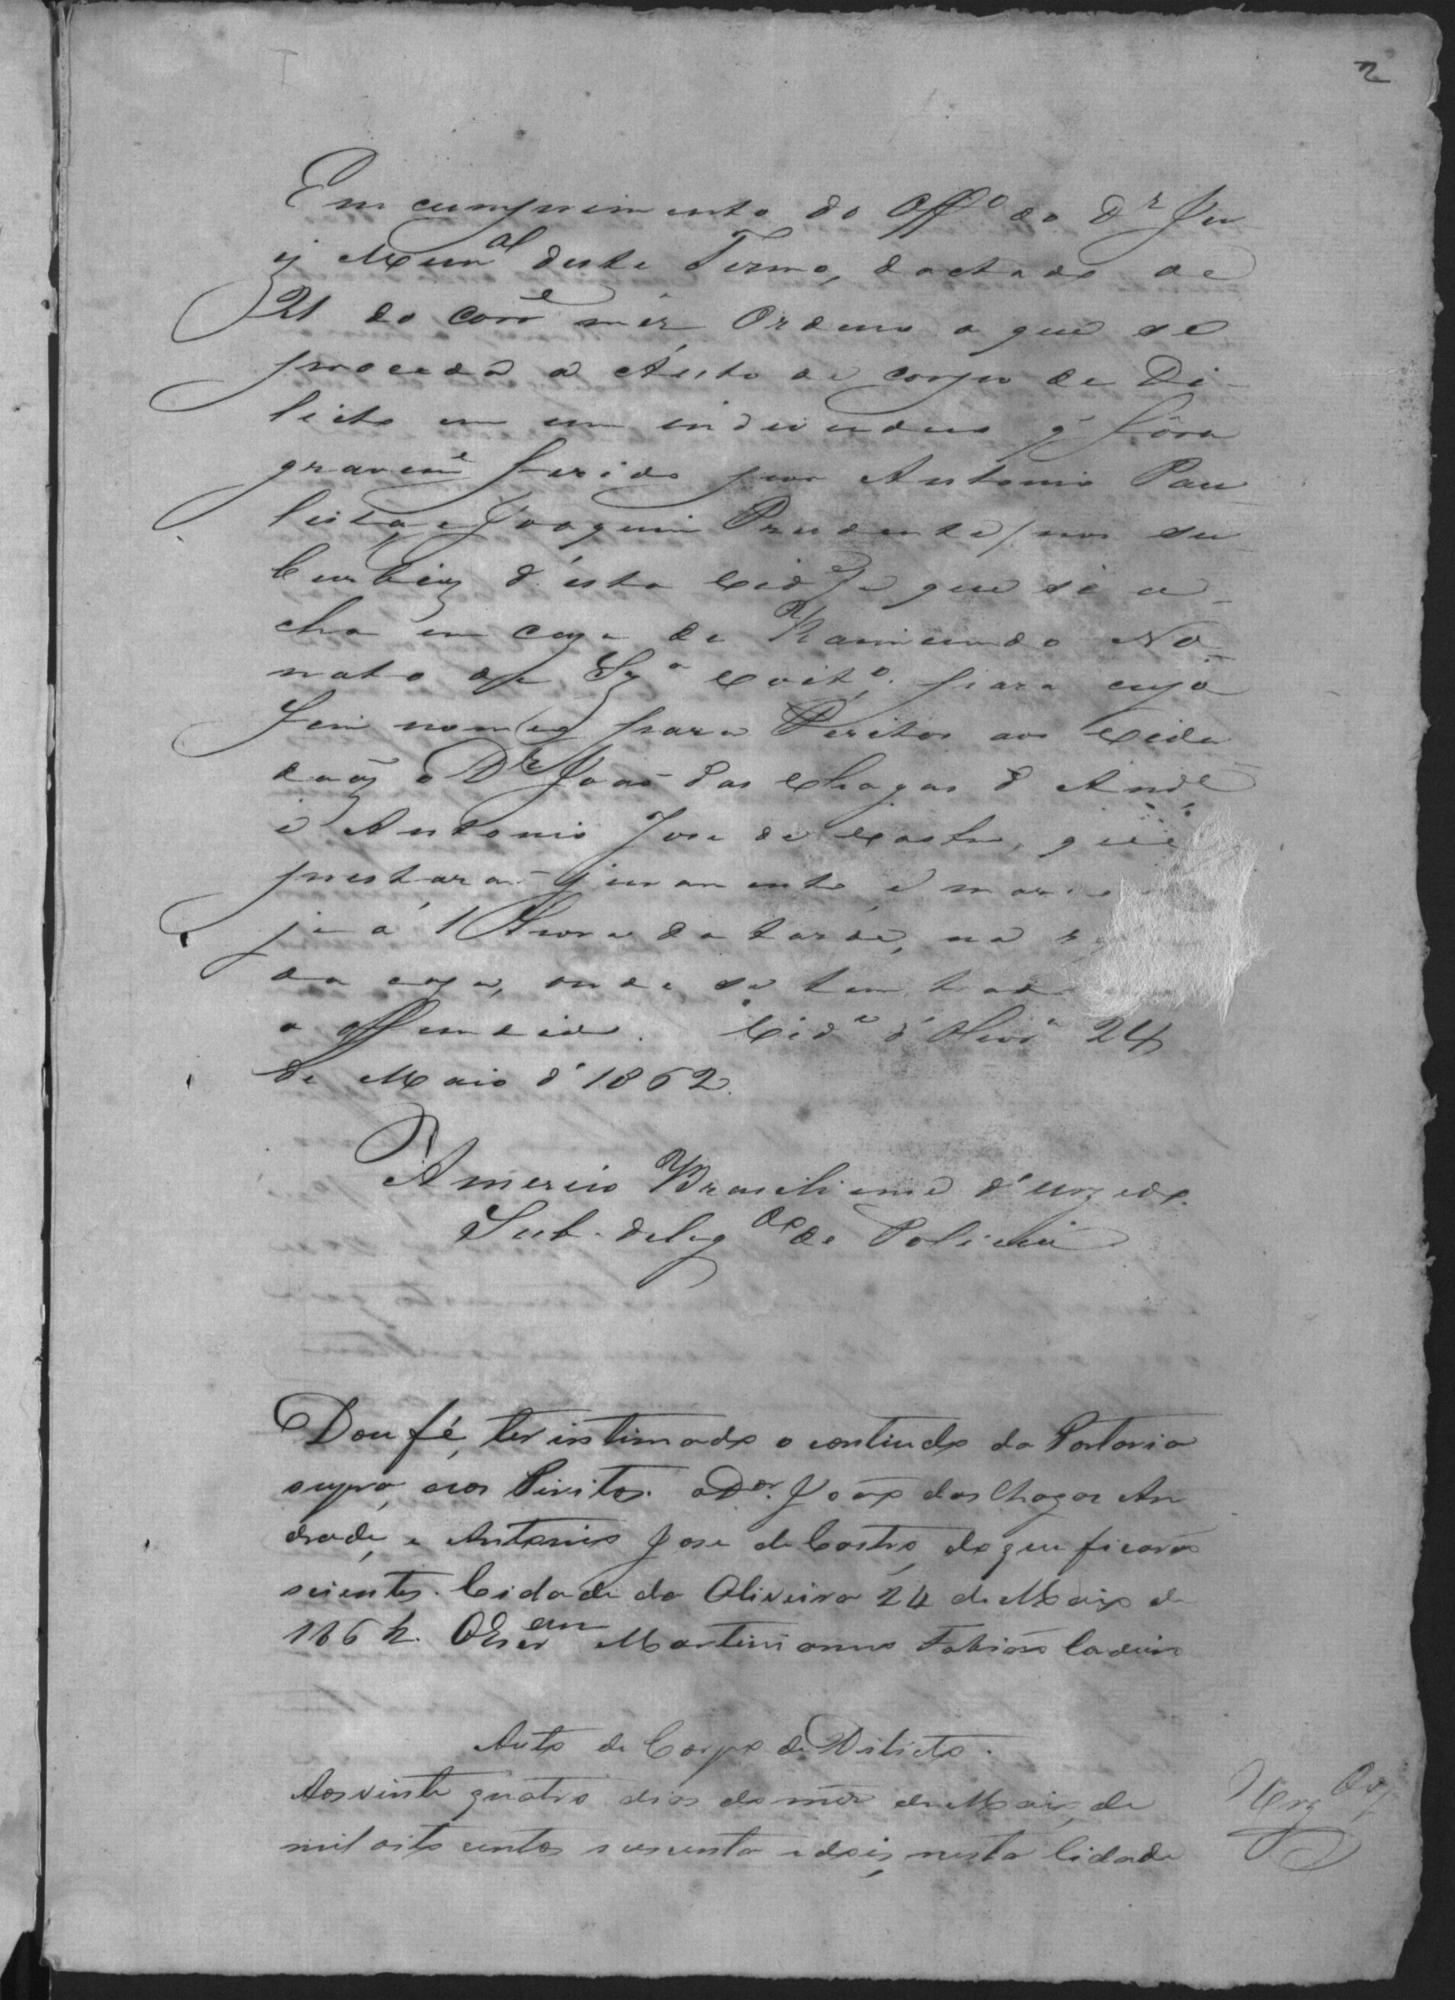 2
Em cumprimento do Offº do Dr Ju
iz Munal deste Termo, dactado de
21 do corre mez, Ordeno a que se
proceda a Auto de corpo de De
licto em um individuo q' fôra
graveme ferido por Antonio Pau
lista, e Joaquim Prudente/nos su
burbios d'esta Cide/e que se a
cha em caza de Raimundo No
nato de para cujo
fim nomeio para Peritos aos Cida
daõs o Dr João das Chagas d'Andre
e Antonio Jose de Castro, que
prestarão juramento, e marco
je á 1 Hora da tarde, na
da caza, onde se tem
o offendido. Cide d'Olivra 24
de Maio d'1862.
Americo Brasiliense d'
Sub-delegdo de Policia
Dou fé, ter intimado o contiudo da Portaria
supra, aos Piritos. o Dor. João das Chagas An
drade, e Antonio Jose de Castro, do que ficarão
scientes. Cidade da Oliveira 24 de Maio de
1862. O Escram Martinianno
Auto de Corpo de Dilicto.
Aos vinte quatro dias do mez de Maio, de
mil oito centos sescenta e dois, nesta Cidade